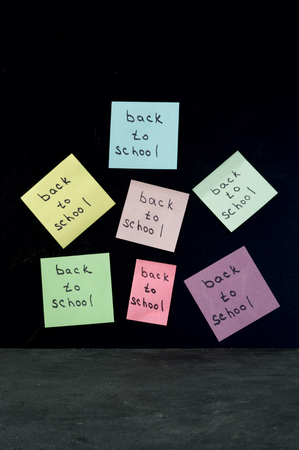 back
to
school
back
to
school
back
to
school
back
to
school
back
to
school
back
to
school
back
to
school